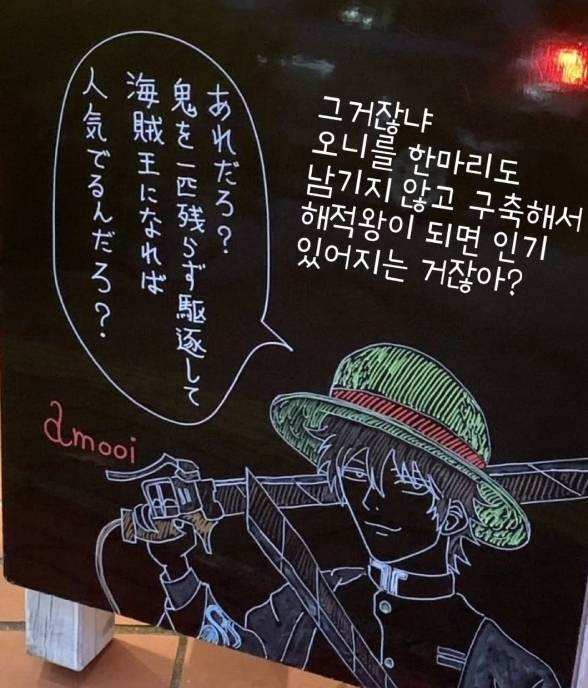 あれだろ？
鬼を一匹残らず駆逐して
海賊王になれば
人気でるんだろ？
그거잖냐
오니를 한마리도
남기지 않고 구축해서
해적왕이 되면 인기
있어지는 거잖아?
amooi